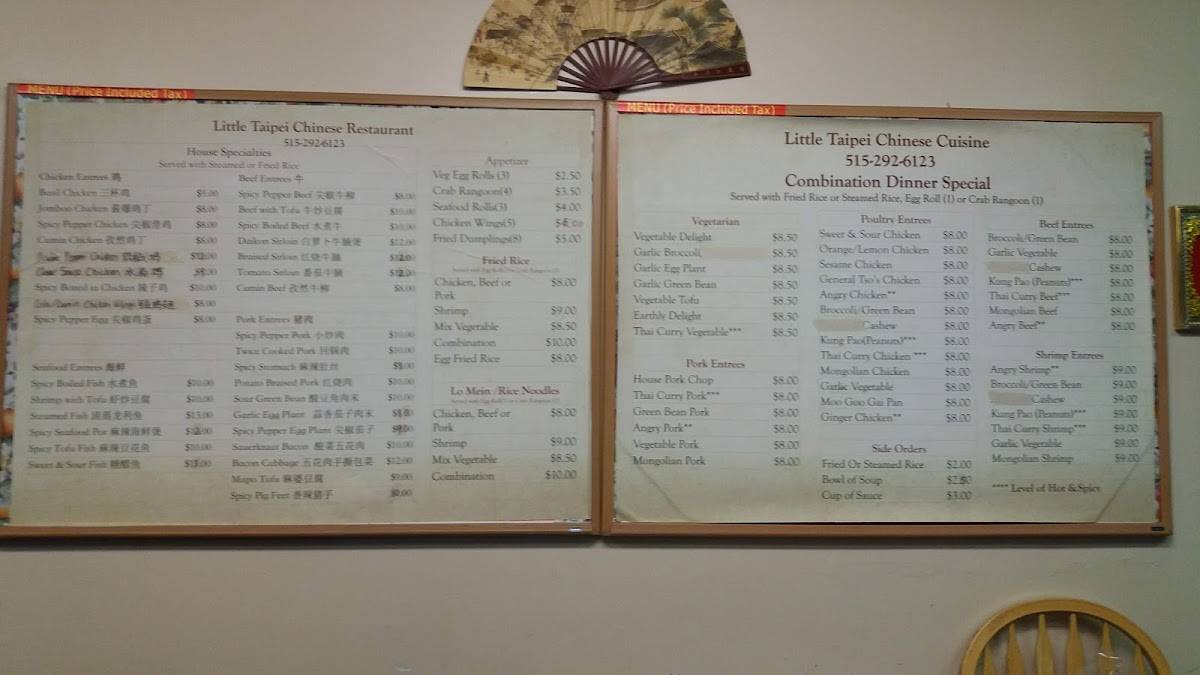 MENU (Price Included Tax)
Little Taipei Chinese Restaurant
515-292-6123
House Specialties
Served with Steamed or Fried Rice
Chicken Entrees 鸡
Basil Chicken 三杯鸡 $9.00
Jomboo Chicken 酱爆鸡丁 $8.00
Spicy Pepper Chicken 尖椒滑鸡 $8.00
Cumin Chicken 孜然鸡丁 $8.00
Pepper Chicken $12.00
Chicken $9.00
Spicy Boned in Chicken 辣子鸡 $10.00
Chicken Wings $8.00
Spicy Pepper Egg 尖椒鸡蛋 $8.00
Seafood Entrees 海鲜
Spicy Boiled Fish 水煮鱼 $10.00
Shrimp with Tofu 虾炒豆腐 $10.00
Steamed Fish 清蒸龙利鱼 $13.00
Spicy Seafood Pot 麻辣海鲜煲 $12.00
Spicy Tofu Fish 麻辣豆花鱼 $10.00
Sweet & Sour Fish 糖醋鱼 $13.00
Beef Entrees 牛
Spicy Pepper Beef 尖椒牛柳 $8.00
Beef with Tofu 牛炒豆腐 $10.00
Spicy Boiled Beef 水煮牛 $10.00
Daikon Sirloin 白萝卜牛腩煲 $12.00
Braised Sirloin 红烧牛腩 $12.00
Tomato Sirloin 番茄牛腩 $12.00
Cumin Beef 孜然牛柳 $8.00
Pork Entrees 猪肉
Spicy Pepper Pork 小炒肉 $10.00
Twice Cooked Pork 回锅肉 $10.00
Spicy Stomach 麻辣肚丝 $9.00
Potato Braised Pork 红烧肉 $10.00
Sour Green Bean 酸豆角肉末 $10.00
Garlic Egg Plant 蒜香茄子肉末
Spicy Pepper Egg Plant 尖椒茄子
Sauerkraut Bacon 酸菜五花肉 $10.00
Bacon Cabbage 五花肉手撕包菜 $12.00
Mapo Tofu 麻婆豆腐 $9.00
Spicy Pig Feet 香辣猪手
Appetizer
Veg Egg Rolls (3) $2.50
Crab Rangoon(4) $3.50
Seafood Rolls(3) $4.00
Chicken Wings(5)
Fried Dumplings(8) $5.00
Fried Rice
Chicken, Beef or $8.00
Pork
Shrimp $9.00
Mix Vegetable $8.50
Combination $10.00
Egg Fried Rice $8.00
Lo Mein /Rice Noodles
Chicken, Beef or $8.00
Pork
Shrimp $9.00
Mix Vegetable $8.50
Combination $10.00
MENU (Price Included Tax)
Little Taipei Chinese Cuisine
515-292-6123
Combination Dinner Special
Served with Fried Rice or Steamed Rice, Egg Roll (1) or Crab Rangoon (1)
Vegetarian
Vegetable Delight $8.50
Garlic Broccoli $8.50
Garlic Egg Plant $8.50
Garlic Green Bean $8.50
Vegetable Tofu $8.50
Earthly Delight $8.50
Thai Curry Vegetable*** $8.50
Pork Entrees
House Pork Chop $8.00
Thai Curry Pork*** $8.00
Green Bean Pork $8.00
Angry Pork** $8.00
Vegetable Pork $8.00
Mongolian Pork $8.00
Poultry Entrees
Sweet & Sour Chicken $8.00
Orange/Lemon Chicken $8.00
Sesame Chicken $8.00
General Tso's Chicken $8.00
Angry Chicken** $8.00
Broccoli/Green Bean $8.00
Cashew $8.00
Kung Pao(Peanuts)*** $8.00
Thai Curry Chicken *** $8.00
Mongolian Chicken $8.00
Garlic Vegetable $8.00
Moo Goo Gai Pan $8.00
Ginger Chicken** $8.00
Side Orders
Fried Or Steamed Rice $2.00
Bowl of Soup
Cup of Sauce $3.00
Beef Entrees
Broccoli/Green Bean $8.00
Garlic Vegetable $8.00
Cashew $8.00
Kung Pao (Peanuts)*** $8.00
Thai Curry Beef*** $8.00
Mongolian Beef $8.00
Angry Beef** $8.00
Shrimp Entrees
Angry Shrimp** $9.00
Broccoli/Green Bean $9.00
Cashew $9.00
Kung Pao (Peanuts)*** $9.00
Thai Curry Shrimp*** $9.00
Garlic Vegetable $9.00
Mongolian Shrimp $9.00
**** Level of Hot &Spicy